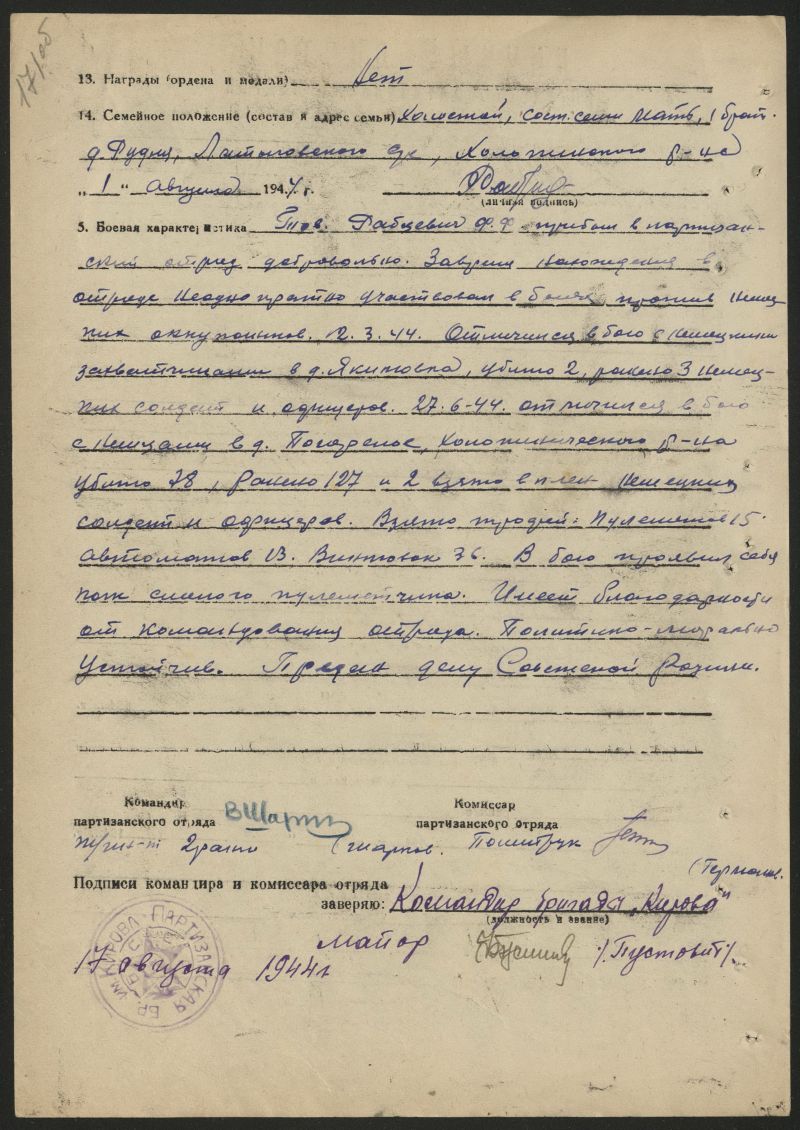 13. Награды (ордена и медали) Нет
14. Семейное положение (состав и адрес семьи) Холостой, сост. семьи Мать, 1 брат.
д. Рудня, с/с, р-на
„1“ августа 1944 г.
(личная подпись)
5. Боевая характеристика Тов. Рабцевич Ф. Ф. прибыл в партизан-
ский отряд добровольно. Заврем нахождения в
отряде неоднократно участвовал в боях против немец
ких оккупантов. 12.3.44. Отличился в бою с немецкими
захватчиками в д. Якимовка, убито 2, ранено 3 немец-
ких солдат и офицеров. 27.6-44. отличился в бою
с немцами в д. Погорелое, р-на
убито 78, ранено 127 и 2 взято в плен немецких
солдат и офицеров. Взято трофей: Пулеметов 15.
автоматов 13. Винтовок 36. В бою проявил себя
как смелого пулеметчика. Имеет благодарности
от командования отряда. Политико-морально
устойчив. Предан делу Советской Родины.
Командир
партизанского отряда
Комиссар
партизанского отряда
Политрук
Подписи командира и комиссара отряда
заверяю: Командир бригады „Кирова“
(должность и звание)
майор /Пустовит/.
17 августа 1944г
ПАРТИЗАНСКАЯ БР. ИМ. КИРОВА
17/об